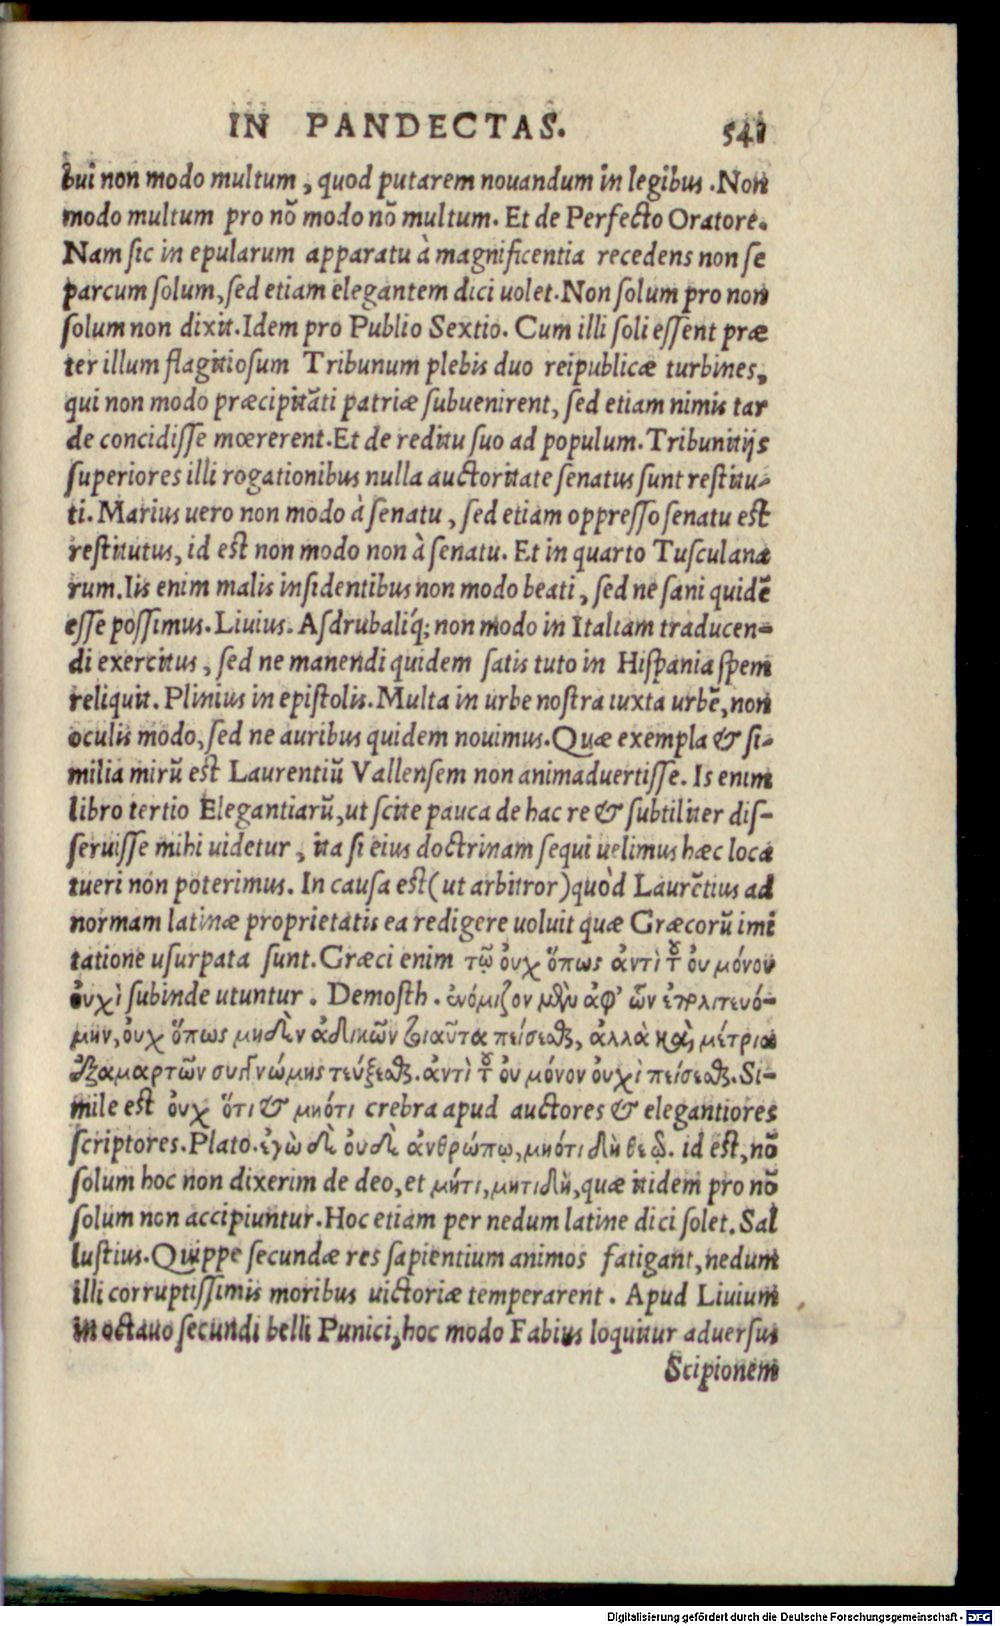 IN PANDECTAS. 541
bui non modo multum, quod putarem nouandum in legibus. Non
modo multum pro nõ modo nõ multum. Et de Perfecto Oratore.
Nam ſic in epularum apparatu à magnificentia recedens non ſe
parcum ſolum, ſed etiam elegantem dici uolet. Non ſolum pro non
ſolum non dixit. Idem pro Publio Sextio. Cum illi ſoli eſſent præ
ter illum flagitioſum Tribunum plebis duo reipublicæ turbines,
qui non modo præcipitãti patriæ ſubuenirent, ſed etiam nimis tar
de concidiſſe mœrerent. Et de reditu ſuo ad populum. Tribunitijs
ſuperiores illi rogationibus nulla auctoritate ſenatus ſunt reſtitu-
ti. Marius uero non modo à ſenatu, ſed etiam oppreſſo ſenatu eſt
reſtitutus, id eſt non modo non à ſenatu. Et in quarto Tuſculana
rum. Iis enim malis inſidentibus non modo beati, ſed ne ſani quidẽ
eſſe poſſimus. Liuius. Aſdrubaliq́; non modo in Italiam traducen-
di exercitus, ſed ne manendi quidem ſatis tuto in Hiſpania ſpem
reliquit. Plinius in epiſtolis. Multa in urbe noſtra iuxta urbẽ, non
oculis modo, ſed ne auribus quidem nouimus. Quæ exempla & ſi-
milia mirũ eſt Laurentiũ Vallenſem non animaduertiſſe. Is enim
libro tertio Elegantiarũ, ut ſcite pauca de hac re & ſubtiliter diſ-
ſeruiſſe mihi uidetur, ita ſi eius doctrinam ſequi uelimus hæc loca
tueri non poterimus. In cauſa eſt (ut arbitror) quòd Laurẽtius ad
normam latinæ proprietatis ea redigere uoluit quæ Græcorũ imi
tatione uſurpata ſunt. Græci enim τῷ οὐχ ὅπως ἀντὶ τοῦ οὐ μόνον
οὐχὶ ſubinde utuntur. Demoſth. ἐνόμιζον μὲν ἀφ’ ὧν ἐπολιτευό-
μην, οὐχ ὅπως μηδὲν ἀδικῶν τοιαῦτα πείσεσθαι, ἀλλὰ καὶ μέτρια
ἐξαμαρτῶν συγγνώμης τεύξεσθαι. ἀντὶ τοῦ οὐ μόνον οὐχὶ πείσεσθαι. Si-
mile eſt οὐχ ὅτι & μηότι crebra apud auctores & elegantiores
ſcriptores. Plato. ἐγὼ δὲ οὐδὲ ἀνθρώπῳ, μηότι δὴ θεῷ. id eſt, nõ
ſolum hoc non dixerim de deo, et μήτι, μητιδὴ, quæ itidem pro nõ
ſolum non accipiuntur. Hoc etiam per nedum latine dici ſolet. Sal
luſtius. Quippe ſecundæ res ſapientium animos fatigant, nedum
illi corruptiſſimis moribus uictoriæ temperarent. Apud Liuium
in octauo ſecundi belli Punici, hoc modo Fabius loquitur aduerſus
Scipionem
Digitalisierung gefördert durch die Deutsche Forschungsgemeinschaft - DFG